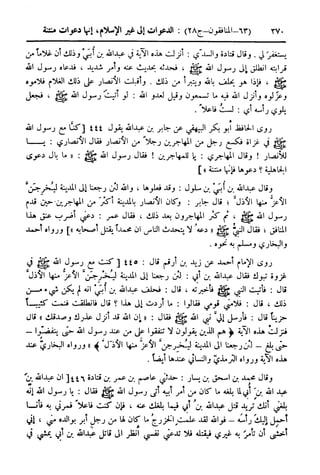 ٣٧٠ (٦٣-المنافقون-ج٢٨): الدعوات إلى غير الإسلام، إنها دعوات منتنة
يستغفر لي. وقال قتادة والسدي: أنزلت هذه الآية في عبدالله بن أُبَيّ وذلك أن غلاماً من
قرابته انطلق إلى رسول الله ﷺ، فحدثه بحديث عنه وأمر شديد، فدعاه رسول الله
ﷺ، فإذا هو يحلف بالله ويتبرأ من ذلك. وأقبلت الأنصار على ذلك الغلام فلاموه
وعزلوه وأنزل الله فيه ما تسمعون وقيل لعدو الله: لو أتيت رسول الله ﷺ، فجعل
يلوي رأسه أي: لستُ فاعلاً.
روى الحافظ أبو بكر البيهقي عن جابر بن عبدالله يقول ٤٤٤ [كنَّا مع رسول الله
ﷺ في غزاة فكسع رجل من المهاجرين رجلاً من الأنصار فقال الأنصاري: يـــا
للأنصار! وقال المهاجري: يا للمهاجرين! فقال رسول الله ﷺ: « ما بال دعوى
الجاهلية؟ دعوها فإنها منتنة »]
وقال عبدالله بن أُبَيّ بن سلول: وقد فعلوها، والله لَئن رجعنا إلى المدينة لَيُخْرِجَنَّ
الأعزُّ منها الأذلَّ؛ قال جابر: وكان الأنصار بالمدينة أكثرَ من المهاجرين حين قدم
رسول الله ﷺ، ثم كثر المهاجرون بعد ذلك، فقال عمر: دعني أضرب عنق هذا
المنافق، فقال النبي ﷺ: « دعهُ لا يتحدث الناس أن محمداً يقتل أصحابه »] ورواه أحمد
والبخاري ومسلم به نحوه.
روى الإمام أحمد عن زيد بن أرقم قال: ٤٤٥ [كنت مع رسول الله ﷺ في
غزوة تبوك فقال عبدالله بن أُبي: لئن رجعنا إلى المدينة لَيُخْرِجَنَّ الأعزُّ منها الأذلَّ
قال: فأتيت النبي ﷺ فأخبرته، قال: فحلف عبدالله بن أُبَيّ أنه لم يكن شيء مـــن
ذلك، قال: فلامني قومي فقالوا: ما أردتَ إلى هذا؟ قال فانطلقت فنمت كئيبـــاً
حزيناً قال: فأرسل إليَّ نبي الله ﷺ فقال: « إن الله قد أنزل عذرك وصدقك » قال
فنزلت هذه الآية ﴿ هم الذين يقولون لا تنفقوا على من عند رسول الله حتى ينفضـــوا –
حتى بلغ – لئن رجعنا إلى المدينة لَيُخْرِجَنَّ الأعزُّ منها الأذلَّ ﴾ » ورواه البخاري عند
هذه الآية ورواه الترمذيّ والنسائي عندها أيضاً.
وقال محمد بن اسحق بن يسار: حدثني عاصم بن عمر بن قتادة ٤٤٦ [ان عبدالله بنَ
عبد الله بنِ أُبي لما بلغه ما كان من أمر أبيه أتى رسول الله ﷺ فقال: يا رسول الله إنَّه
بلغني أنك تريد قتل عبدالله بن أُبي فيما بلغك عنه، فإن كنت فاعلاً فمرني به فأنـــا
أحملُ إليك رأسه – فوالله لقد علمت الخزرج ما كان لها من رجل أبر بوالده مني، إني
أخشى أن تأمُرَ به غيري فيقتله فلا تدعني نفسي أنظر الى قاتل عبدالله بن أُبي يمشي في